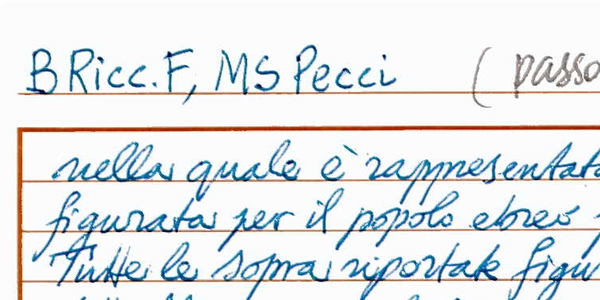 B Ricc. F, MS Pecci (passo
nella quale è rappresentata
figurata per il popolo ebreo
Tutte le sopra riportate figu